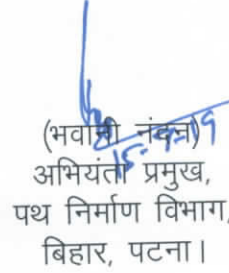 15-9-19
(भवानी नंदन)
अभियंता प्रमुख,
पथ निर्माण विभाग,
बिहार, पटना।